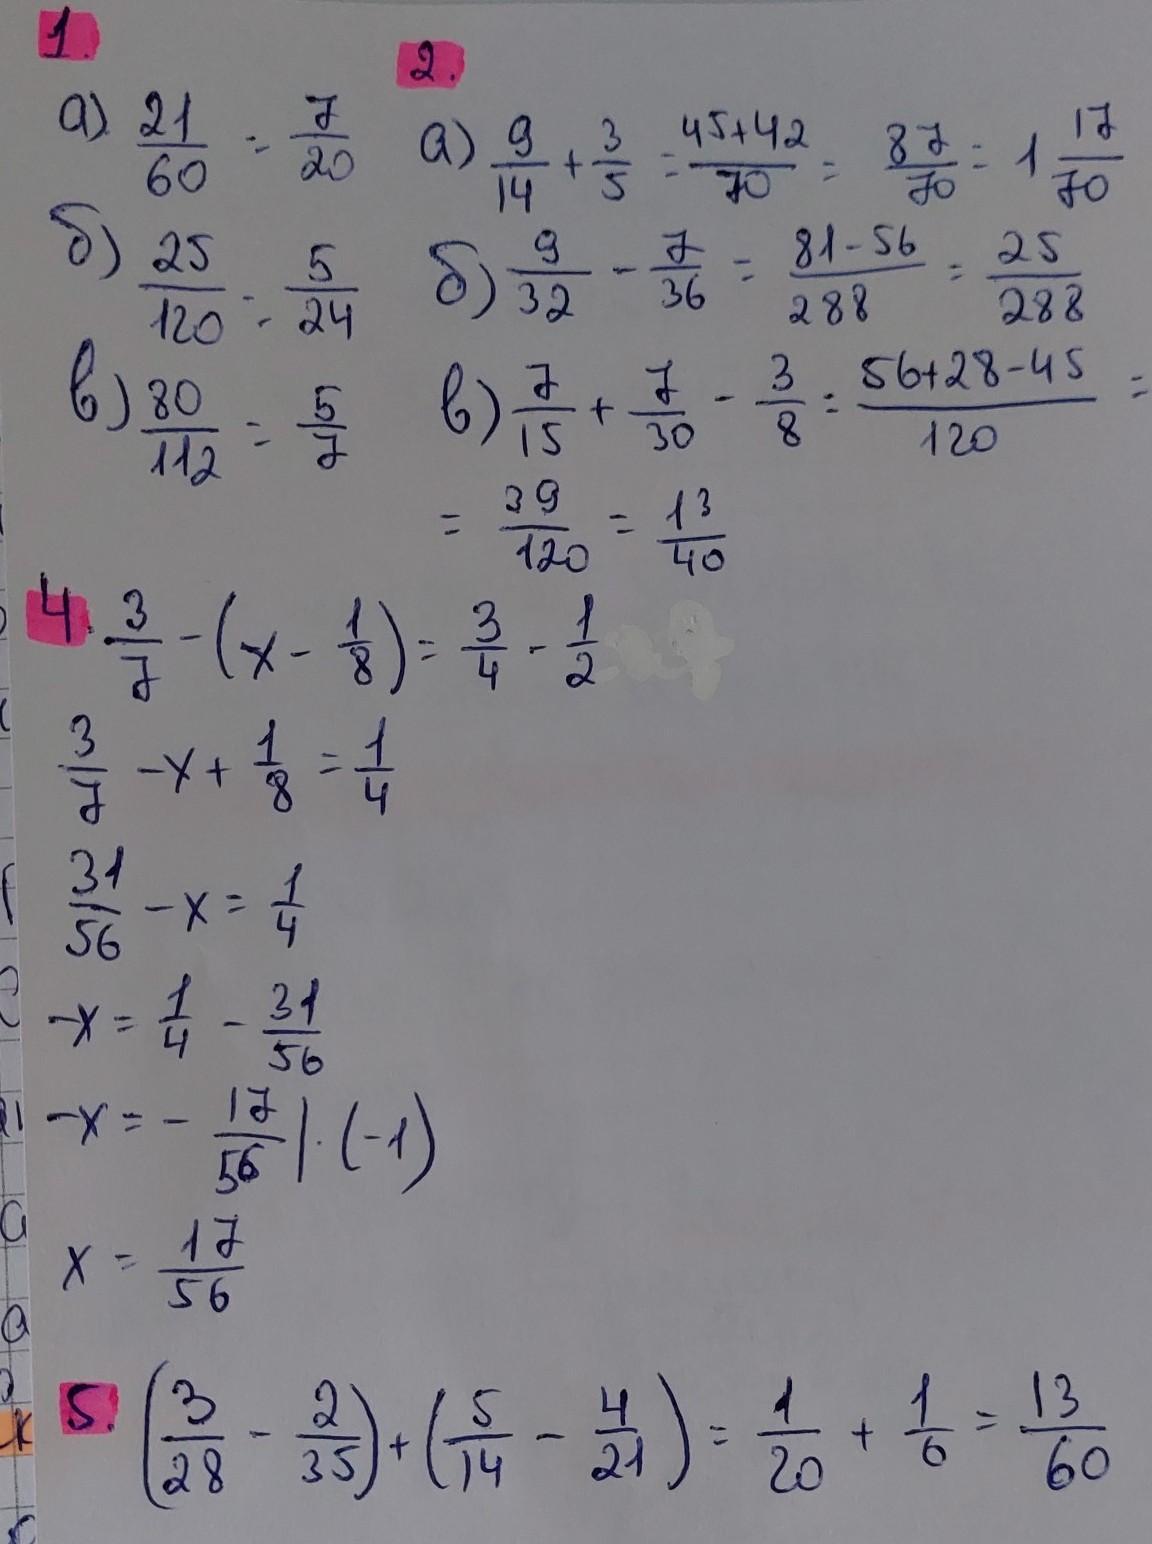 1.
а) 21/60 = 7/20
б) 25/120 = 5/24
в) 80/112 = 5/7
2.
а) 9/14 + 3/5 = 45+42/70 = 87/70 = 1 17/70
б) 9/32 - 7/36 = 81-56/288 = 25/288
в) 7/15 + 7/30 - 3/8 = 56+28-45/120 =
= 39/120 = 13/40
4. 3/7 - (x - 1/8) = 3/4 - 1/2
3/7 - x + 1/8 = 1/4
31/56 - x = 1/4
-x = 1/4 - 31/56
-x = - 17/56 | · (-1)
x = 17/56
5. (3/28 - 2/35) + (5/14 - 4/21) = 1/20 + 1/6 = 13/60